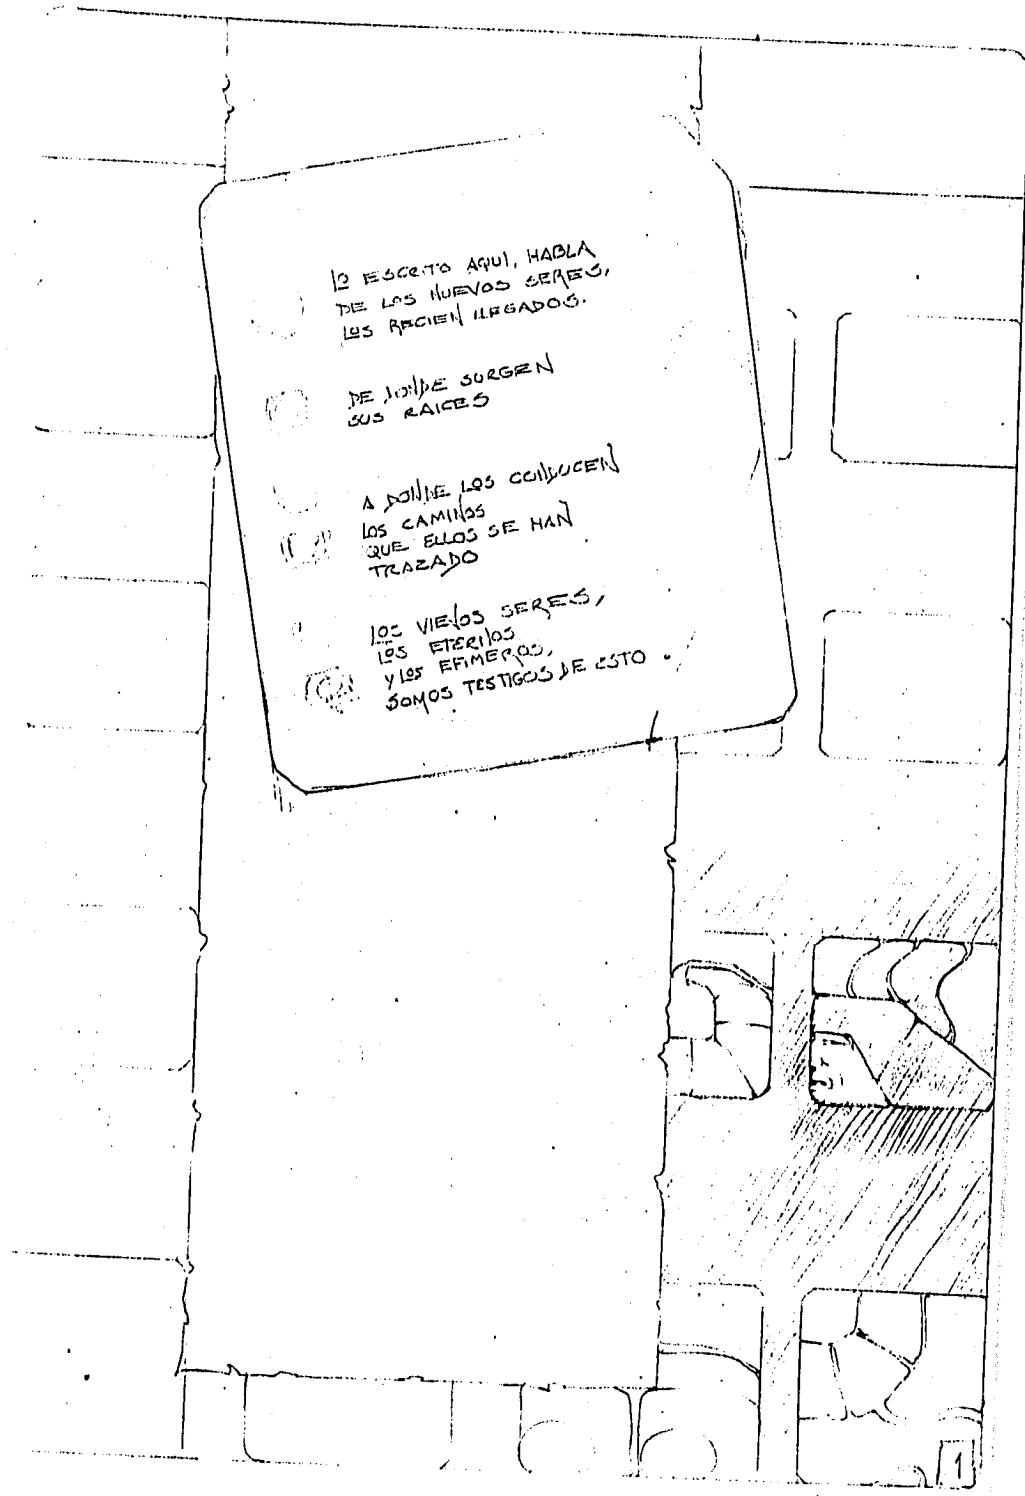 LO ESCRITO AQUI, HABLA
DE LOS NUEVOS SERES,
LOS RECIEN LLEGADOS.
DE DONDE SURGEN
SUS RAICES
A DONDE LOS CONDUCEN
LOS CAMINOS
QUE ELLOS SE HAN
TRAZADO
LOS VIEJOS SERES,
LOS ETERNOS
Y LOS EFIMEROS,
SOMOS TESTIGOS DE ESTO.
1